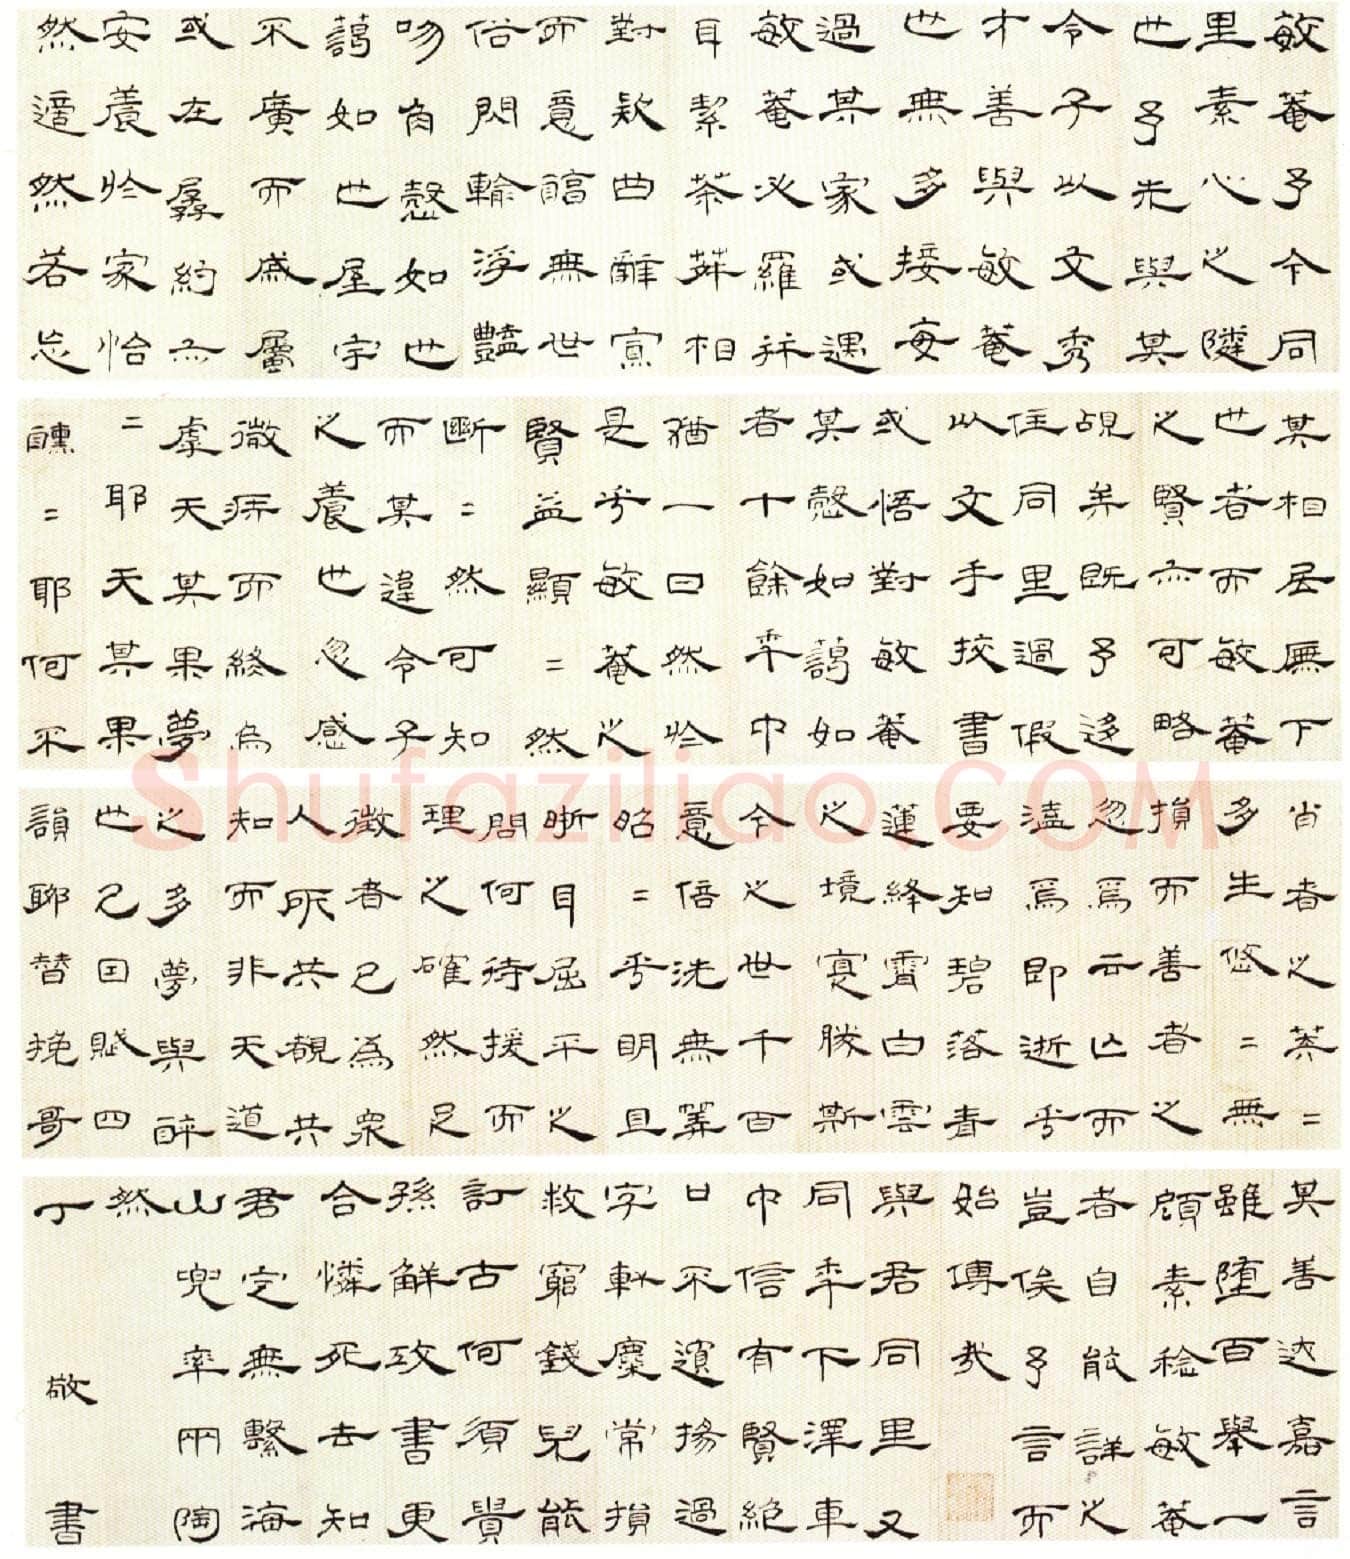 敏菴予今同
里素心之隣
也予未與其
令子以文秀
才善與敏菴
也無多接每
過某家或遇
敏菴必羅
耳絜茶荈相
對欵曲辭寡
而意韽無世
俗閃輸浮豔
吻貞慤如也
藹如也屋宇
不廣而屬
或在孱約亦
安養於家怡
然適然若忘
其相居廡下
也者而敏菴
之賢亦可略
覘矣既予迻
住同里過假
以文手挍書
或悟對敏菴
其慤如藹如
者十餘年中
猶一日然於
是乎敏菴之
賢益顯=然
斷=然可知
而其違令子
之養也忽感
微疾而終烏
虖天其果夢
=耶天其果
醺=耶何不
肖者之棼=
多生悠=無
損而善者之
忽焉云亡而
溘焉即逝乎
要知碧落青
蓮絳霄白雲
之境寔勝斯
今之世千百
意倍洗無筭
昭=乎明且
晰耳屈平之
問何待援而
理之確然足
徵者已為衆
人所共覩共
知而非天道
之多夢與醉
也已因賦四
韻聊替挽哥
其善迖嘉言
雖墮百舉一
顧素稔敏菴
者自能詳之
豈俟予言而
始傳哉
與君同里又
同年下澤車
中信有賢絕
口不濱揚過
字麋常損
救窮錢兒能
訂古何須貴
孫解攻書更
合憐死去知
君定無繫海
山兜率兩陶
然
丁敬書
shufaziliao.COM